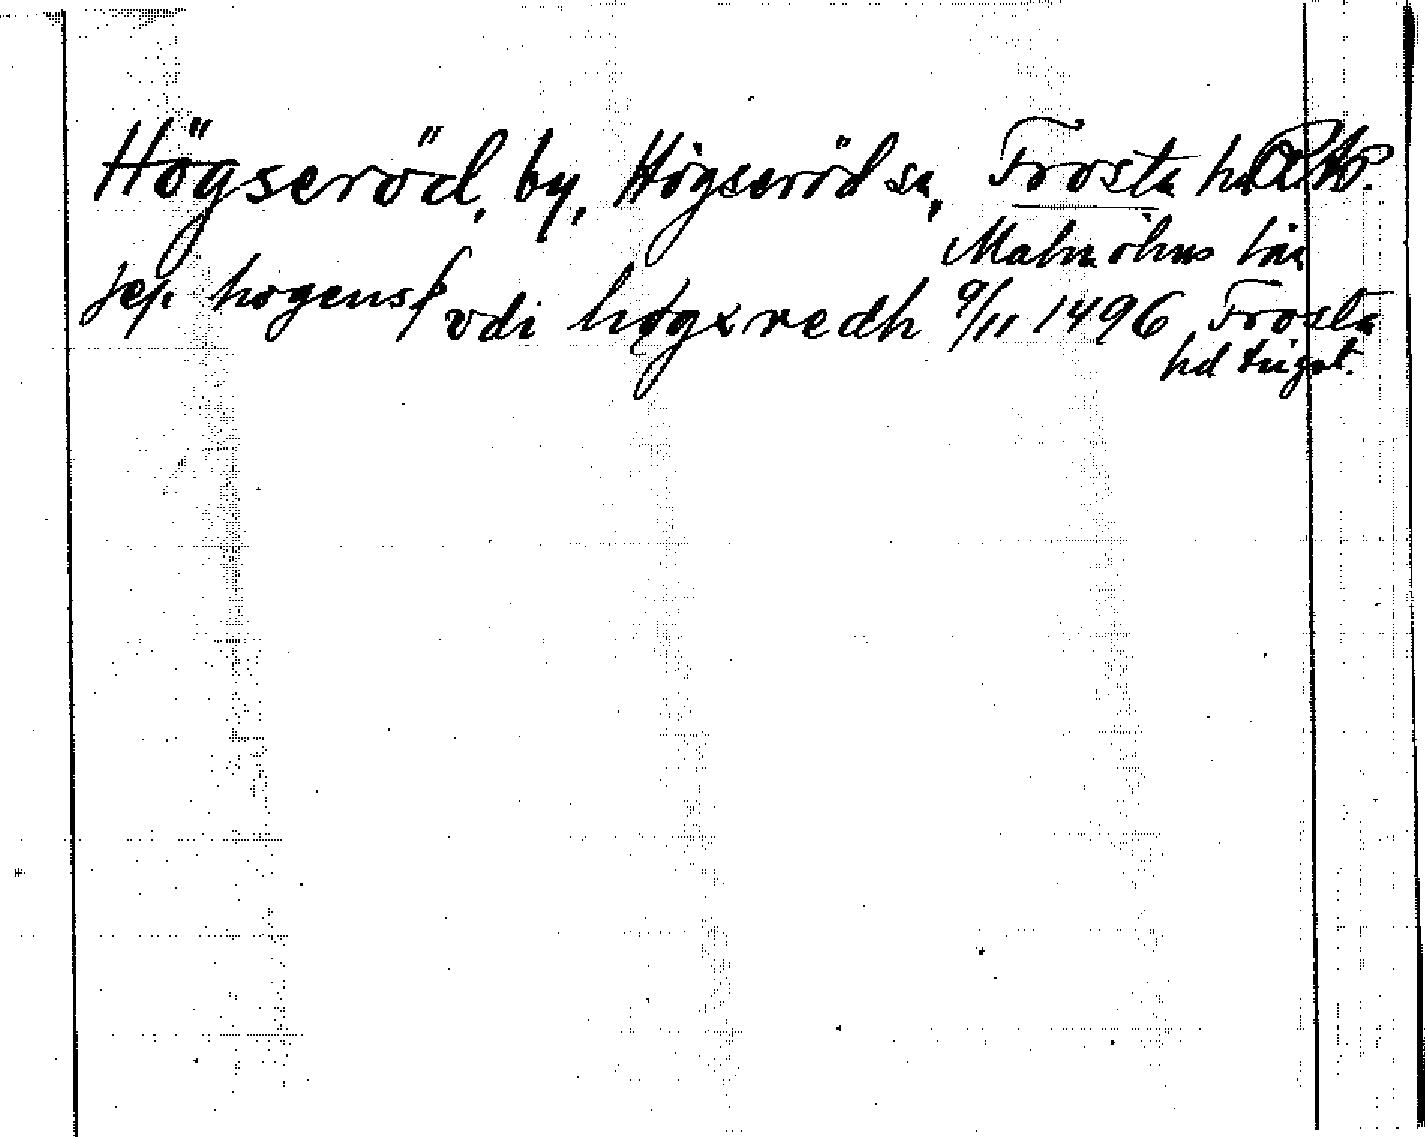 Högseröd, by, Högseröd sn, Frosta hd
Malmöhus län
jep hogenss vdi høgxredh 9/11 1496 Frosta
hd tingst.